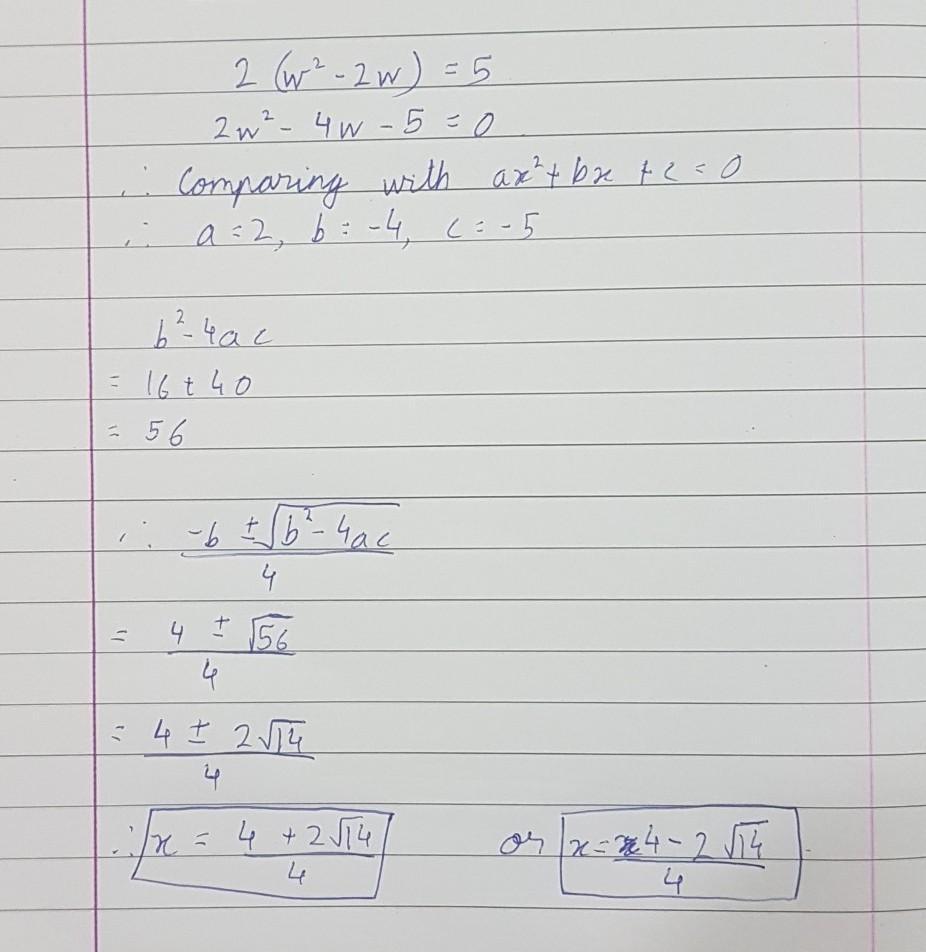 2 (w² - 2w) = 5
2w² - 4w - 5 = 0
∴ Comparing with ax² + bx + c = 0
∴ a = 2, b = -4, c = -5
b² - 4ac
= 16 + 40
= 56
∴ -b ± √(b² - 4ac) / 4
= 4 ± √56 / 4
= 4 ± 2√14 / 4
∴ x = 4 + 2√14 / 4 or x = 4 - 2√14 / 4